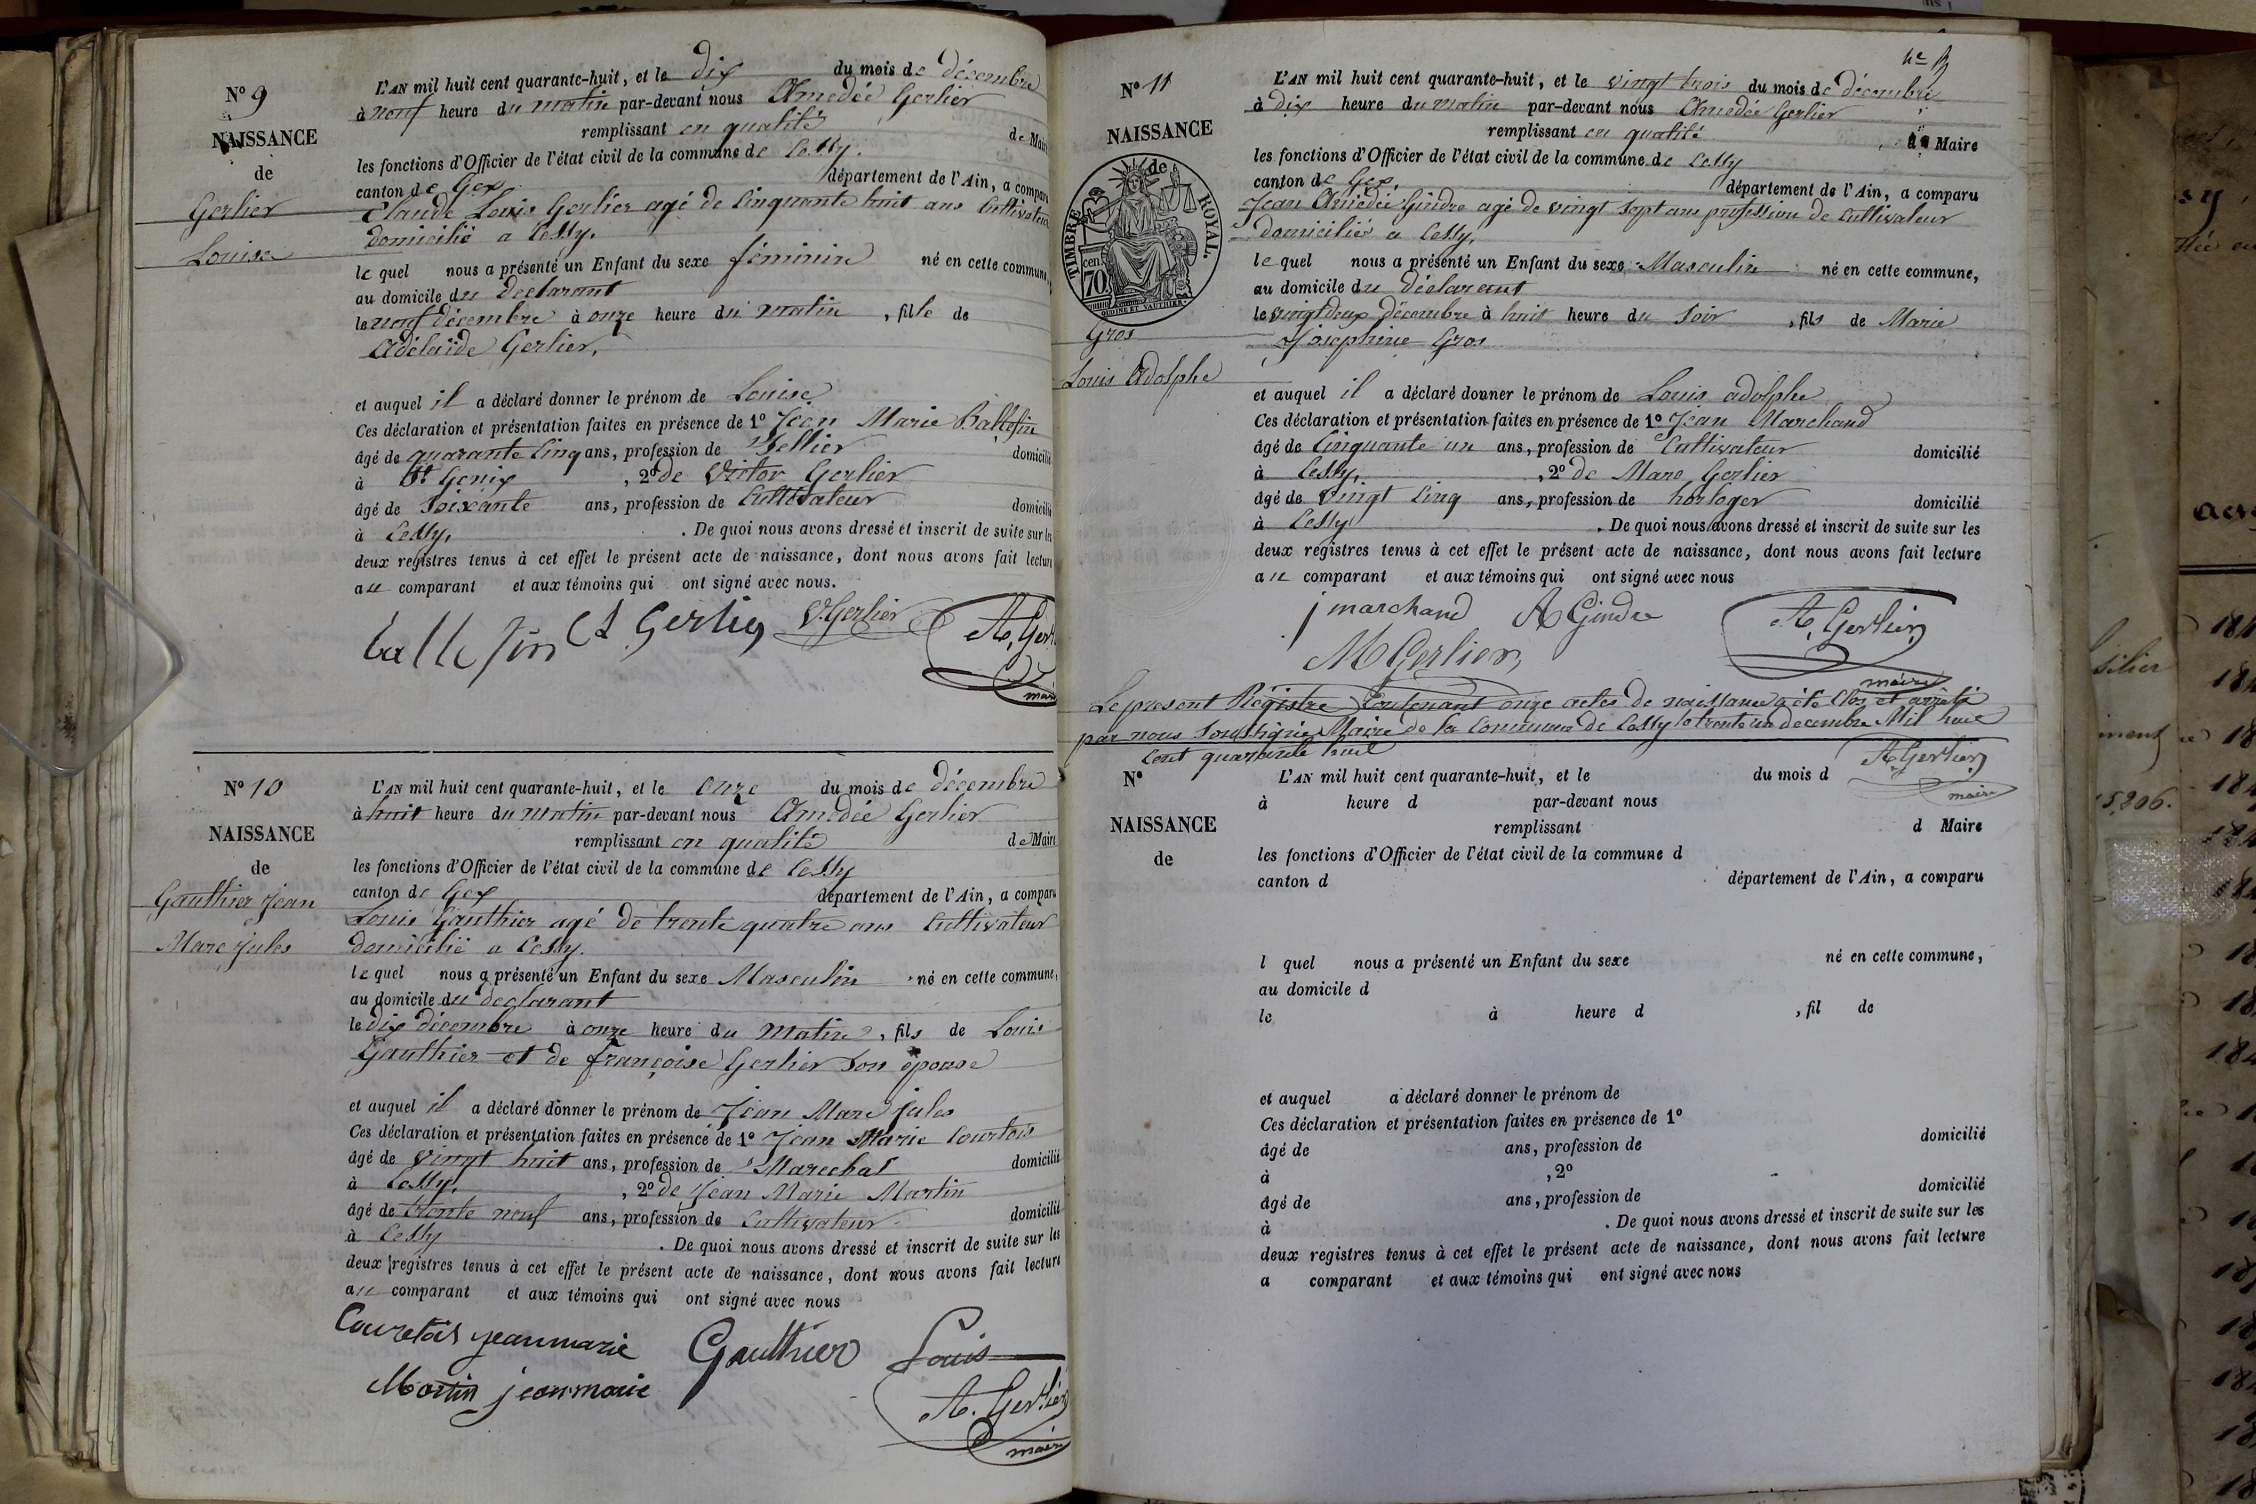 N° 9
NAISSANCE
de
Gerlier
Louise
L'AN mil huit cent quarante-huit, et le dix du mois de décembre
à neuf heure du matin par-devant nous Amedée Gerlier
remplissant en qualité de Maire
les fonctions d'Officier de l'état civil de la commune de Cessy.
canton de Gex, département de l'Ain, a comparu
Claude Louis Gerlier agé de Cinquante huit ans Cultivateur
domicilié a Cessy.
le quel nous a présenté un Enfant du sexe féminin né en cette commune
au domicile du declarant
le neuf décembre à onze heure du matin, fille de
Adélaïde Gerlier,
et auquel il a déclaré donner le prénom de Louise
Ces déclaration et présentation faites en présence de 1° Jean Marie Ballefin
âgé de quarante Cinq ans, profession de Sellier domicilié
à St Genix, 2° de Victor Gerlier
âgé de soixante ans, profession de Cultivateur domicilié
à Cessy, . De quoi nous avons dressé et inscrit de suite sur les
deux registres tenus à cet effet le présent acte de naissance, dont nous avons fait lecture
au comparant et aux témoins qui ont signé avec nous.
ballefin Cl Gerlier V. Gerlier A. Gerl
maire
N° 10
NAISSANCE
de
Gauthier Jean
Marc Jules
L'AN mil huit cent quarante-huit, et le onze du mois de décembre
à huit heure du matin par-devant nous Amedée Gerlier
remplissant en qualité de Maire
les fonctions d'Officier de l'état civil de la commune de Cessy
canton de Gex département de l'Ain, a comparu
Louis Gauthier agé de trente quatre ans Cultivateur
domicilié a Cessy.
le quel nous a présenté un Enfant du sexe Masculin né en cette commune,
au domicile du declarant
le dix décembre à onze heure du matin, fils de Louis
Gauthier et de françoise Gerlier son épouse
et auquel il a déclaré donner le prénom de Jean Marc Jules
Ces déclaration et présentation faites en présence de 1° Jean Marie Courtois
âgé de vingt huit ans, profession de Marechal domicilié
à Cessy, , 2° de Jean Marie Martin
âgé de trente neuf ans, profession de Cultivateur domicilié
à Cessy . De quoi nous avons dressé et inscrit de suite sur les
deux registres tenus à cet effet le présent acte de naissance, dont nous avons fait lecture
au comparant et aux témoins qui ont signé avec nous
Couretois jeanmarie Gauthier Louis
Martin jeanmarie A. Gerlier
maire
N° 11
NAISSANCE
de
TIMBRE ROYAL.
70 cen
Gros
Louis Adolphe
L'AN mil huit cent quarante-huit, et le vingt trois du mois de décembre
à dix heure du matin par-devant nous Amedée Gerlier
remplissant en qualité Maire
les fonctions d'Officier de l'état civil de la commune de Cessy
canton de Gex, département de l'Ain, a comparu
Jean Amédée Gindre agé de vingt sept ans profession de Cultivateur
domicilié a Cessy,
le quel nous a présenté un Enfant du sexe Masculin né en cette commune,
au domicile du déclarant
le vingt deux Décembre à huit heure du soir, fils de Marie
Josephine Gros
et auquel il a déclaré donner le prénom de Louis adolphe
Ces déclaration et présentation faites en présence de 1° Jean Marchand
âgé de Cinquante un ans, profession de Cultivateur domicilié
à Cessy, , 2° de Marc Gerlier
âgé de vingt Cinq ans, profession de horloger domicilié
à Cessy . De quoi nous avons dressé et inscrit de suite sur les
deux registres tenus à cet effet le présent acte de naissance, dont nous avons fait lecture
au comparant et aux témoins qui ont signé avec nous
j marchand A Gindre A. Gerlier
M Gerlier maire
Le présent Régistre Contenant onze actes de naissance a été clos et arrêté
par nous soussigné Maire de la Commune de Cessy le trente un decembre Mil huit
Cent quarante huit
A Gerlier
maire
N°
NAISSANCE
de
L'AN mil huit cent quarante-huit, et le du mois d
à heure d par-devant nous
remplissant d Maire
les fonctions d'Officier de l'état civil de la commune d
canton d département de l'Ain, a comparu
l quel nous a présenté un Enfant du sexe né en cette commune,
au domicile d
le à heure d , fil de
et auquel a déclaré donner le prénom de
Ces déclaration et présentation faites en présence de 1°
âgé de ans, profession de domicilié
à , 2°
âgé de ans, profession de domicilié
à . De quoi nous avons dressé et inscrit de suite sur les
deux registres tenus à cet effet le présent acte de naissance, dont nous avons fait lecture
a comparant et aux témoins qui ont signé avec nous